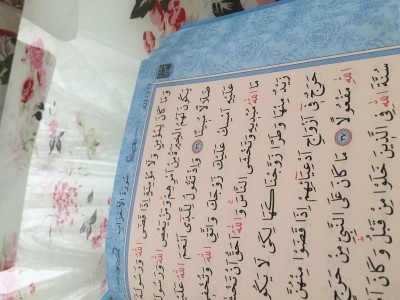 سُورَةُ الْأَحْزَابِ
وَمَا كَانَ لِمُؤْمِنٍ وَلَا مُؤْمِنَةٍ اِذَا قَضَى اللّٰهُ وَرَسُولُهُ
يَكُونَ لَهُمُ الْخِيَرَةُ مِنْ اَمْرِهِمْ وَمَنْ يَعْصِ اللّٰهَ وَرَسُولَهُ
ضَلَالًا مُبِينًا ٣٦ وَاِذْ تَقُولُ لِلَّذِى اَنْعَمَ اللّٰهُ
عَلَيْهِ اَمْسِكْ عَلَيْكَ زَوْجَكَ وَاتَّقِ اللّٰهَ وَتُخْفِى
مَا اللّٰهُ مُبْدِيهِ وَتَخْشَى النَّاسَ وَاللّٰهُ اَحَقُّ اَنْ
زَيْدٌ مِنْهَا وَطَرًا زَوَّجْنَاكَهَا لِكَىْ لَا يَكُونَ
حَرَجٌ فِى اَزْوَاجِ اَدْعِيَائِهِمْ اِذَا قَضَوْا مِنْهُنَّ
اللّٰهِ مَفْعُولًا ٣٧ مَا كَانَ عَلَى النَّبِىِّ مِنْ حَرَجٍ
سُنَّةَ اللّٰهِ فِى الَّذِينَ خَلَوْا مِنْ قَبْلُ وَكَانَ